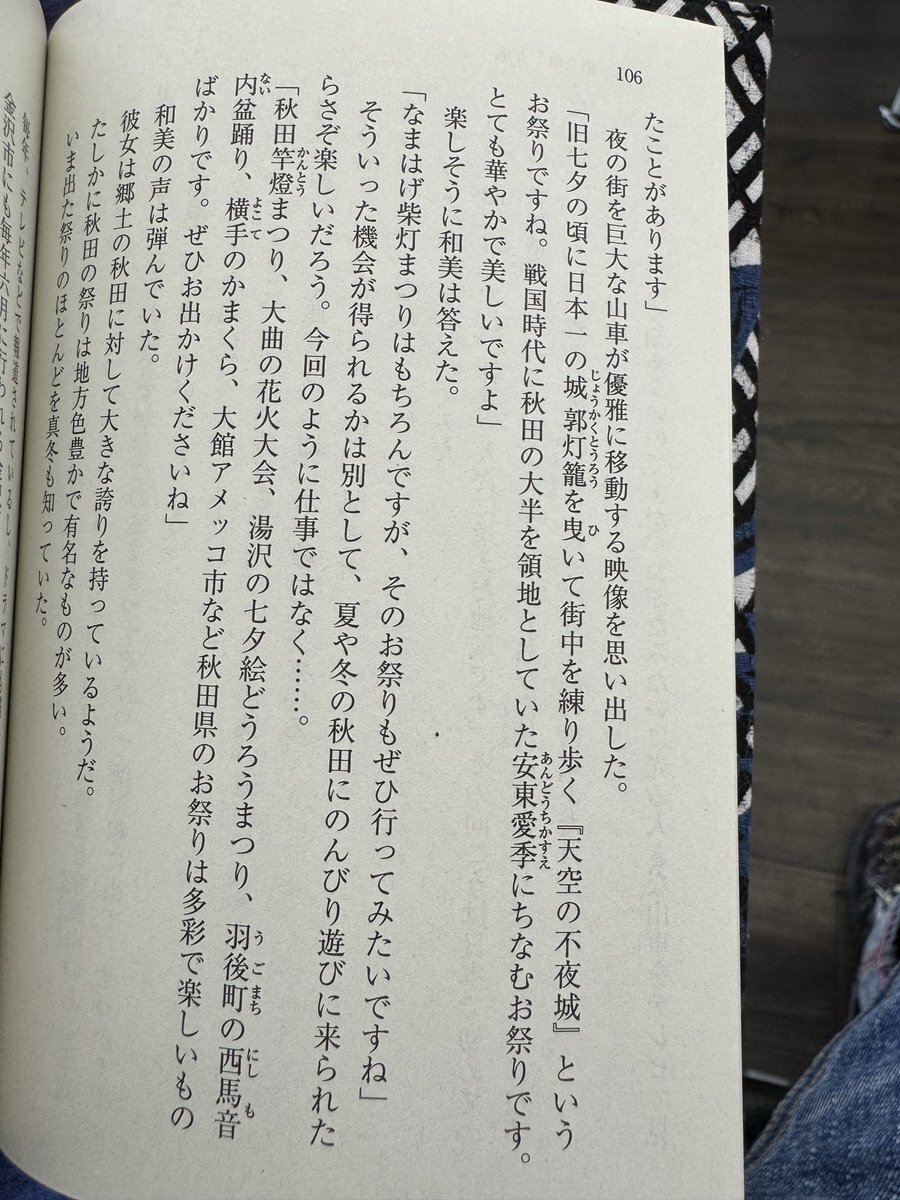 106
たことがあります」
夜の街を巨大な山車が優雅に移動する映像を思い出した。
「旧七夕の頃に日本一の城郭灯籠を曳いて街中を練り歩く『天空の不夜城』という
じょうかくとうろう
ひ
お祭りですね。戦国時代に秋田の大半を領地としていた安東愛季にちなむお祭りです。
あんどうちかすえ
とても華やかで美しいですよ」
楽しそうに和美は答えた。
「なまはげ柴灯まつりはもちろんですが、そのお祭りもぜひ行ってみたいですね」
そういった機会が得られるかは別として、夏や冬の秋田にのんびり遊びに来られた
らさぞ楽しいだろう。今回のように仕事ではなく……。
「秋田竿燈まつり、大曲の花火大会、湯沢の七夕絵どうろうまつり、羽後町の西馬音
かんとう
うごまち
にしも
内盆踊り、横手のかまくら、大館アメッコ市など秋田県のお祭りは多彩で楽しいもの
ない
よこて
ばかりです。ぜひお出かけくださいね」
和美の声は弾んでいた。
彼女は郷土の秋田に対して大きな誇りを持っているようだ。
たしかに秋田の祭りは地方色豊かで有名なものが多い。
いま出た祭りのほとんどを真冬も知っていた。
毎年、テレビなどで報道されているし、ドラマ
金沢市にも毎年六月に行われる